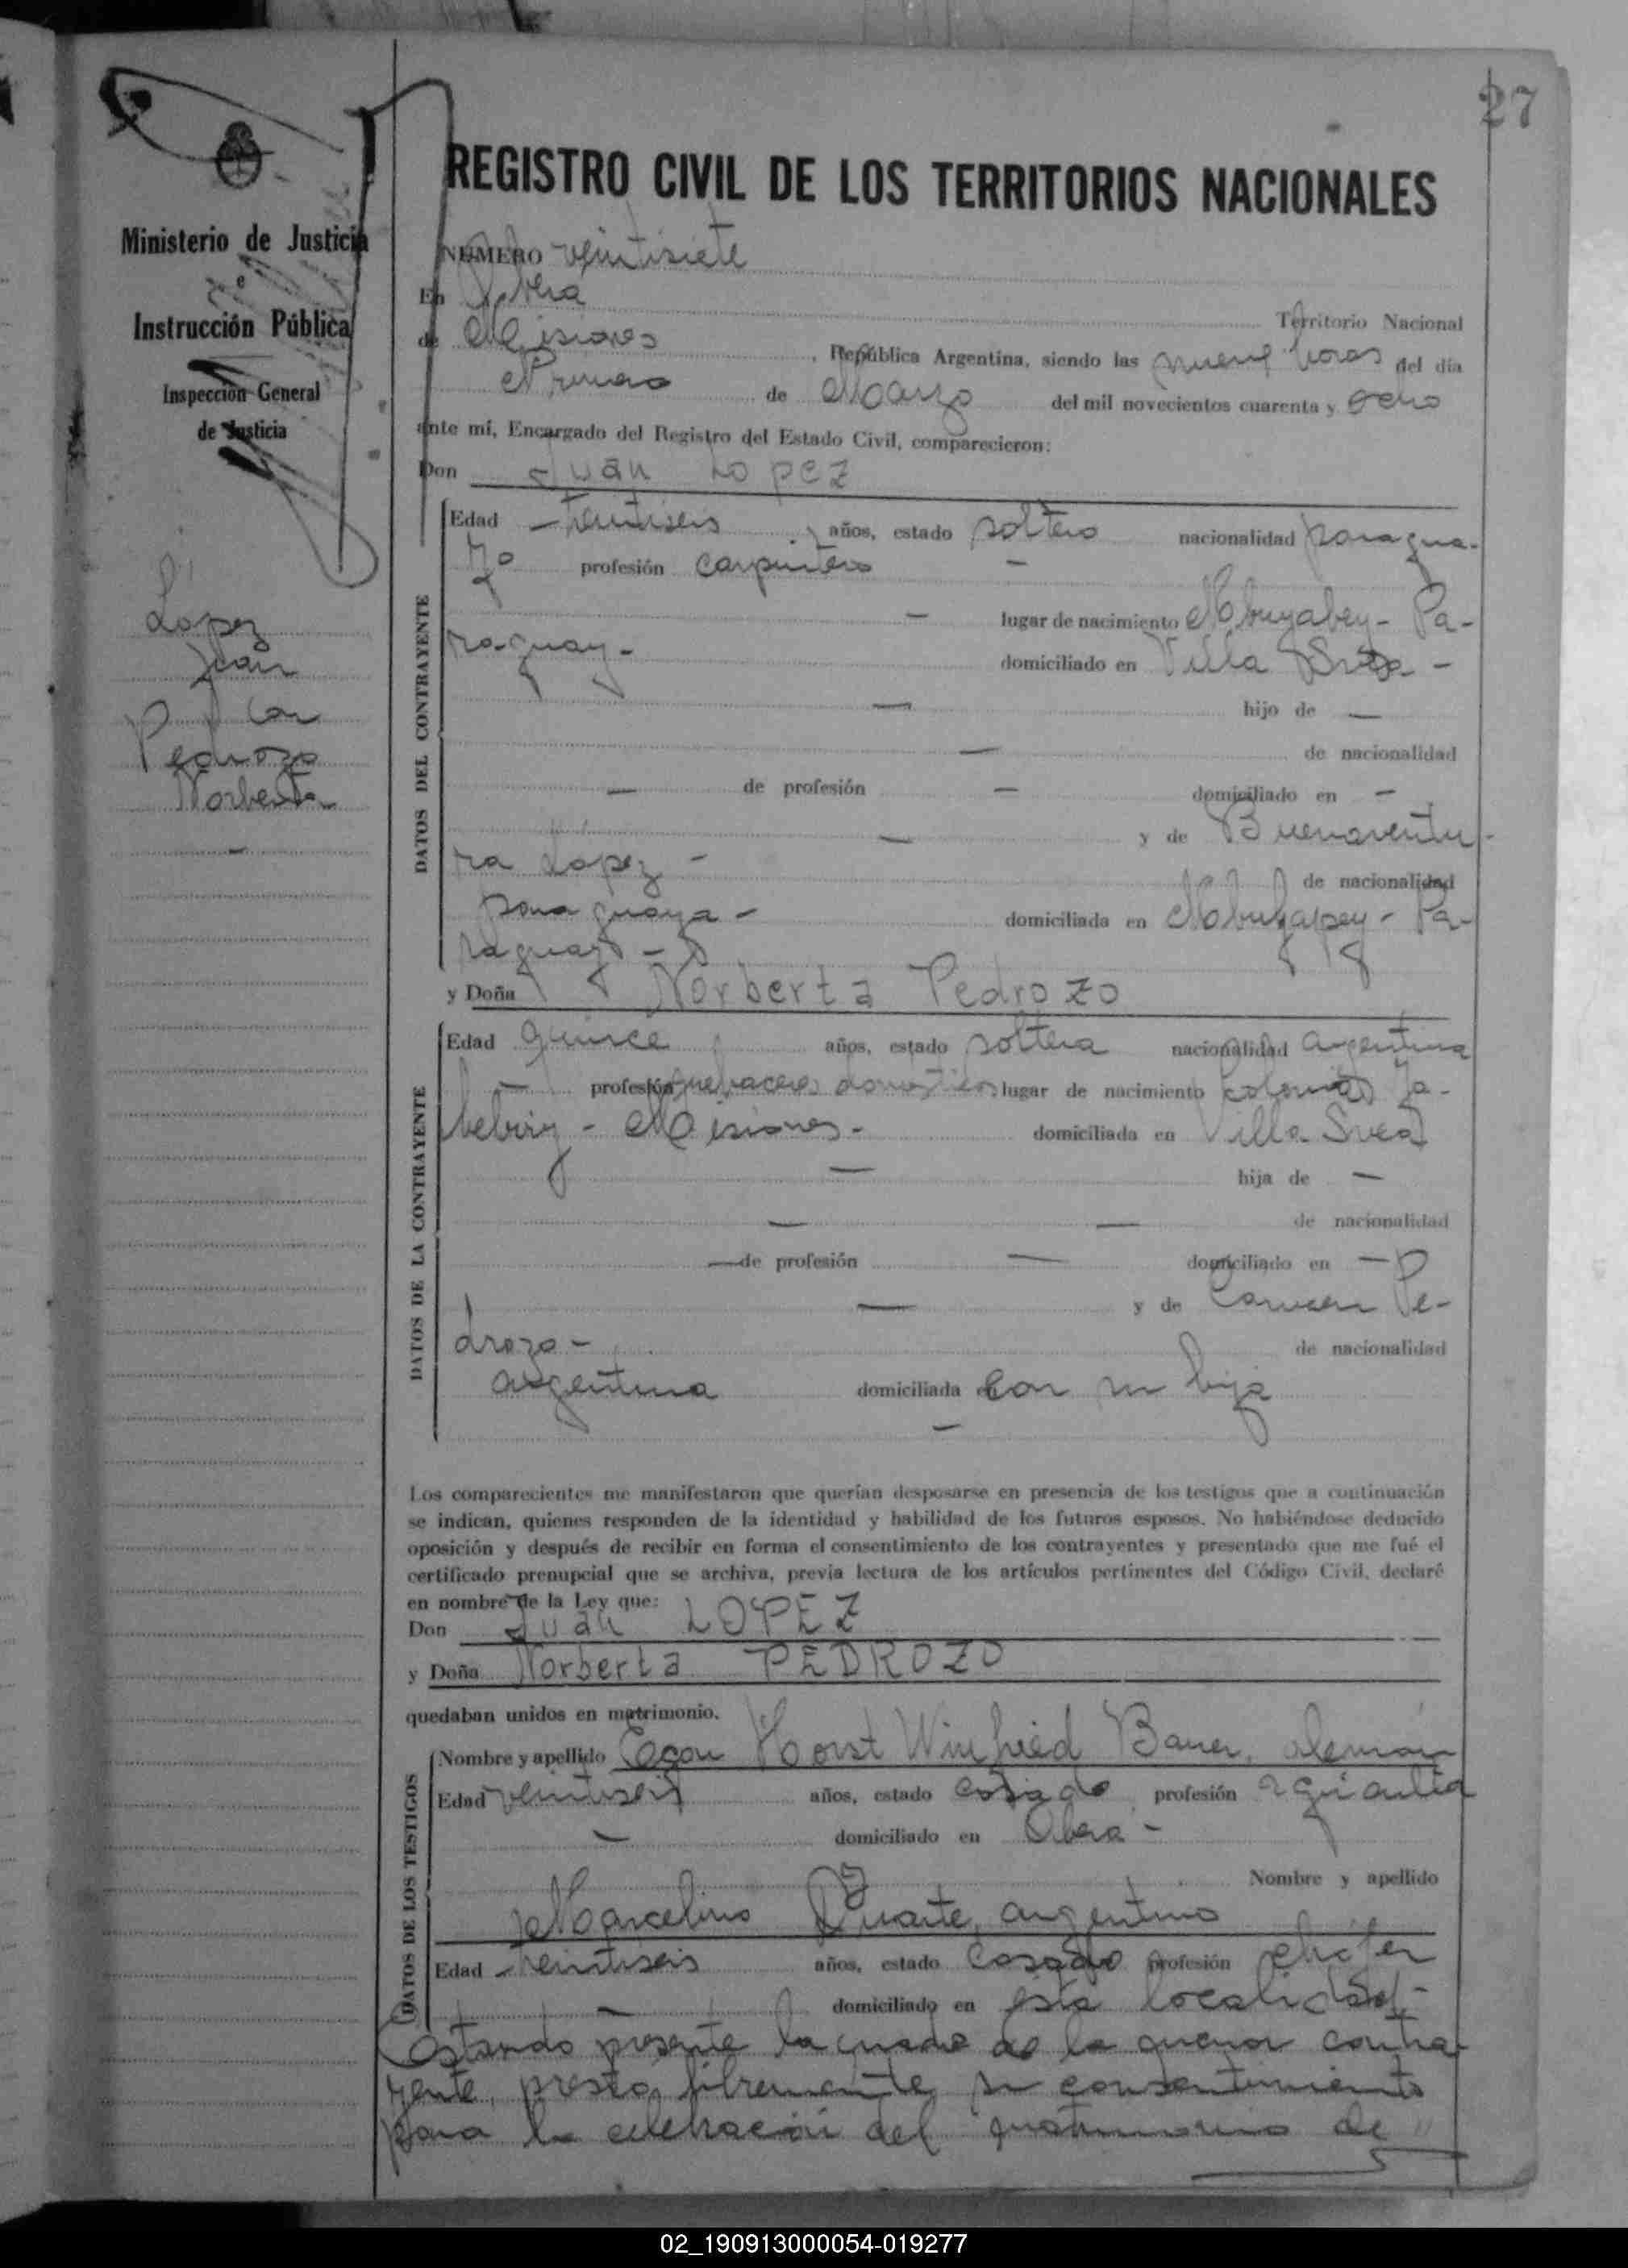 27
REGISTRO CIVIL DE LOS TERRITORIOS NACIONALES
Ministerio de Justicia
e
Instrucción Pública
Inspección General
de Justicia
Lopez
Juan
con
Pedrozo
Norberta
NÚMERO veintisiete
En Obera
Territorio Nacional
de Misiones, República Argentina, siendo las nueve horas del día
Primero de Marzo del mil novecientos cuarenta y ocho
ante mí, Encargado del Registro del Estado Civil, comparecieron:
Don Juan Lopez
DATOS DEL CONTRAYENTE
Edad años, estado soltero nacionalidad paragua-
yo profesión carpintero -
- lugar de nacimiento Mbuyapey - Pa-
raguay - domiciliado en Villa Svea -
- hijo de -
- de nacionalidad
- de profesión - domiciliado en -
- y de Buenaventu-
ra Lopez - de nacionalidad
paraguaya - domiciliada en Mbuyapey - Pa-
raguay -
y Doña Norberta Pedrozo
DATOS DE LA CONTRAYENTE
Edad quince años, estado soltera nacionalidad argentina
- profesión quehaceres domesticos lugar de nacimiento Colonia Ya-
bebiry - Misiones - domiciliada en Villa Svea
- hija de -
- - de nacionalidad
- de profesión - domiciliado en -
- y de Carmen Pe-
drozo - de nacionalidad
argentina domiciliada en con su hija
-
Los comparecientes me manifestaron que querían desposarse en presencia de los testigos que a continuación
se indican, quienes responden de la identidad y habilidad de los futuros esposos. No habiéndose deducido
oposición y después de recibir en forma el consentimiento de los contrayentes y presentado que me fué el
certificado prenupcial que se archiva, previa lectura de los artículos pertinentes del Código Civil, declaré
en nombre de la Ley que:
Don Juan LOPEZ
y Doña Norberta PEDROZO
quedaban unidos en matrimonio.
DATOS DE LOS TESTIGOS
Nombre y apellido Egon Horst Winfried Bauer, alemán
Edad veintiseis años, estado casado profesión agricultor
- domiciliado en Obera -
Nombre y apellido
Marcelino Duarte, argentino
Edad veintiseis años, estado casado profesión chofer
- domiciliado en esta localidad -
Estando presente la madre de la menor contra-
yente, presta libremente su consentimiento
para la celebración del matrimonio de
02_190913000054-019277